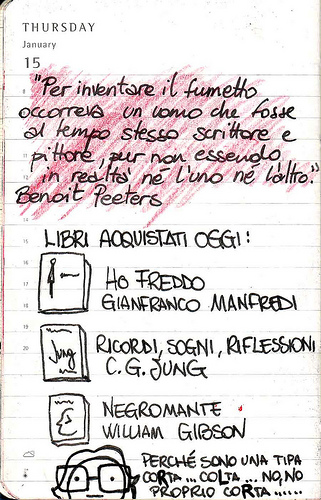 THURSDAY
January
15
"Per inventare il fumetto
occorreva un uomo che fosse
al tempo stesso scrittore e
pittore, pur non essendo
in realtà né l'uno né l'altro."
Benoit Peeters
LIBRI ACQUISTATI OGGI:
HO FREDDO
GIANFRANCO MANFREDI
Jung
RICORDI, SOGNI, RIFLESSIONI
C.G. JUNG
NEGROMANTE
WILLIAM GIBSON
PERCHÉ SONO UNA TIPA
CORTA... COLTA... NO, NO
PROPRIO CORTA......